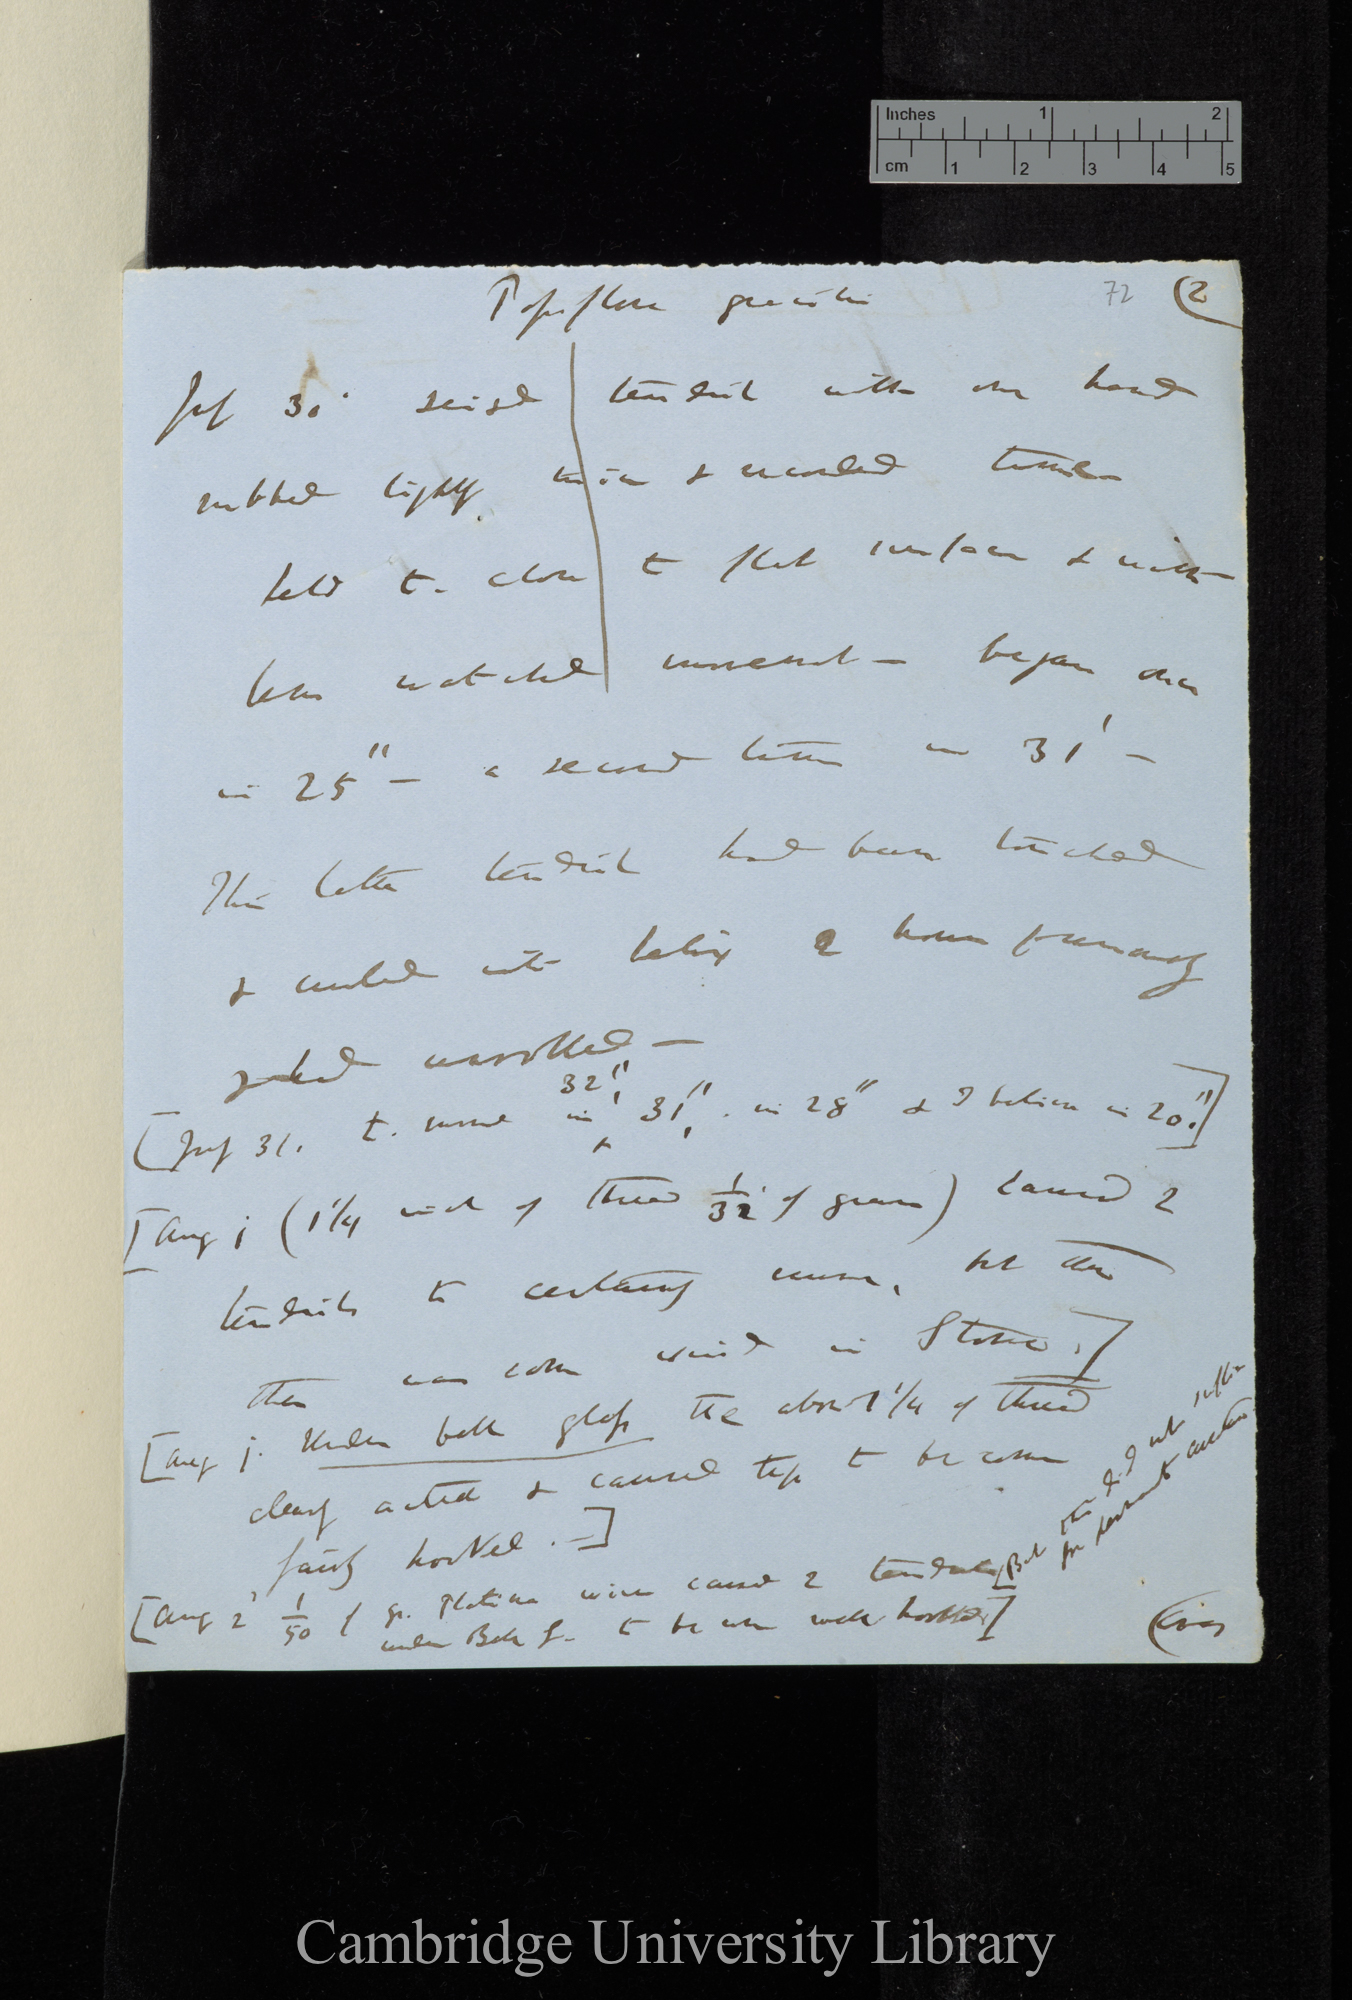 Inches 1 2
cm 1 2 3 4 5
Passiflora gracilis 72 (2
July 30' seized tendril with one hand
rubbed lightly twice & recorded time
held t. close to flat surface & with
lens watched movement — began once
in 25" — a second time in 31' —
This latter tendril had been touched
& curled into helix 2 hours previously
& had unrolled —
32",
[July 31. t. move in 31", in 28" & I believe in 20".]
[Aug 1 (1 1/4 inch of thread 1/32 of grain) caused 2
tendrils to certainly move, but then
there was some wind in Stove.]
[Aug 1. Under bell glass the above 1 1/4 of thread
clearly acted & caused tip to become
fairly hooked. —]
[Aug 2' 1/50 of gr. Platina wire caused 2 tendrils
under Bell G. to become well hooked]
[But this did not suffice
for permanent
(over
Cambridge University Library